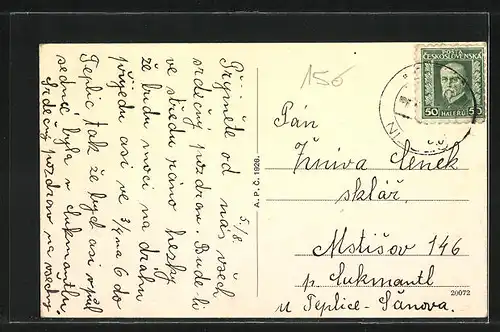 5/8
Přijměte od nás všech
srdečný pozdrav. Bude-li
ve středu ráno hezky
že budu moci na dráhu
přijedu asi ve 3/4 na 6 do
Teplic tak že bych asi v půl
sedmé byla v Cukmantlu.
Srdečný pozdrav na všechny
A. P. C. 1928.
156
POŠTA
ČESKOSLOVENSKÁ
50 HALÉŘŮ 50
Pán
Žniva Čeněk
sklář
Mstišov 146
p. Cukmantl
u Teplice-Šanova.
20072